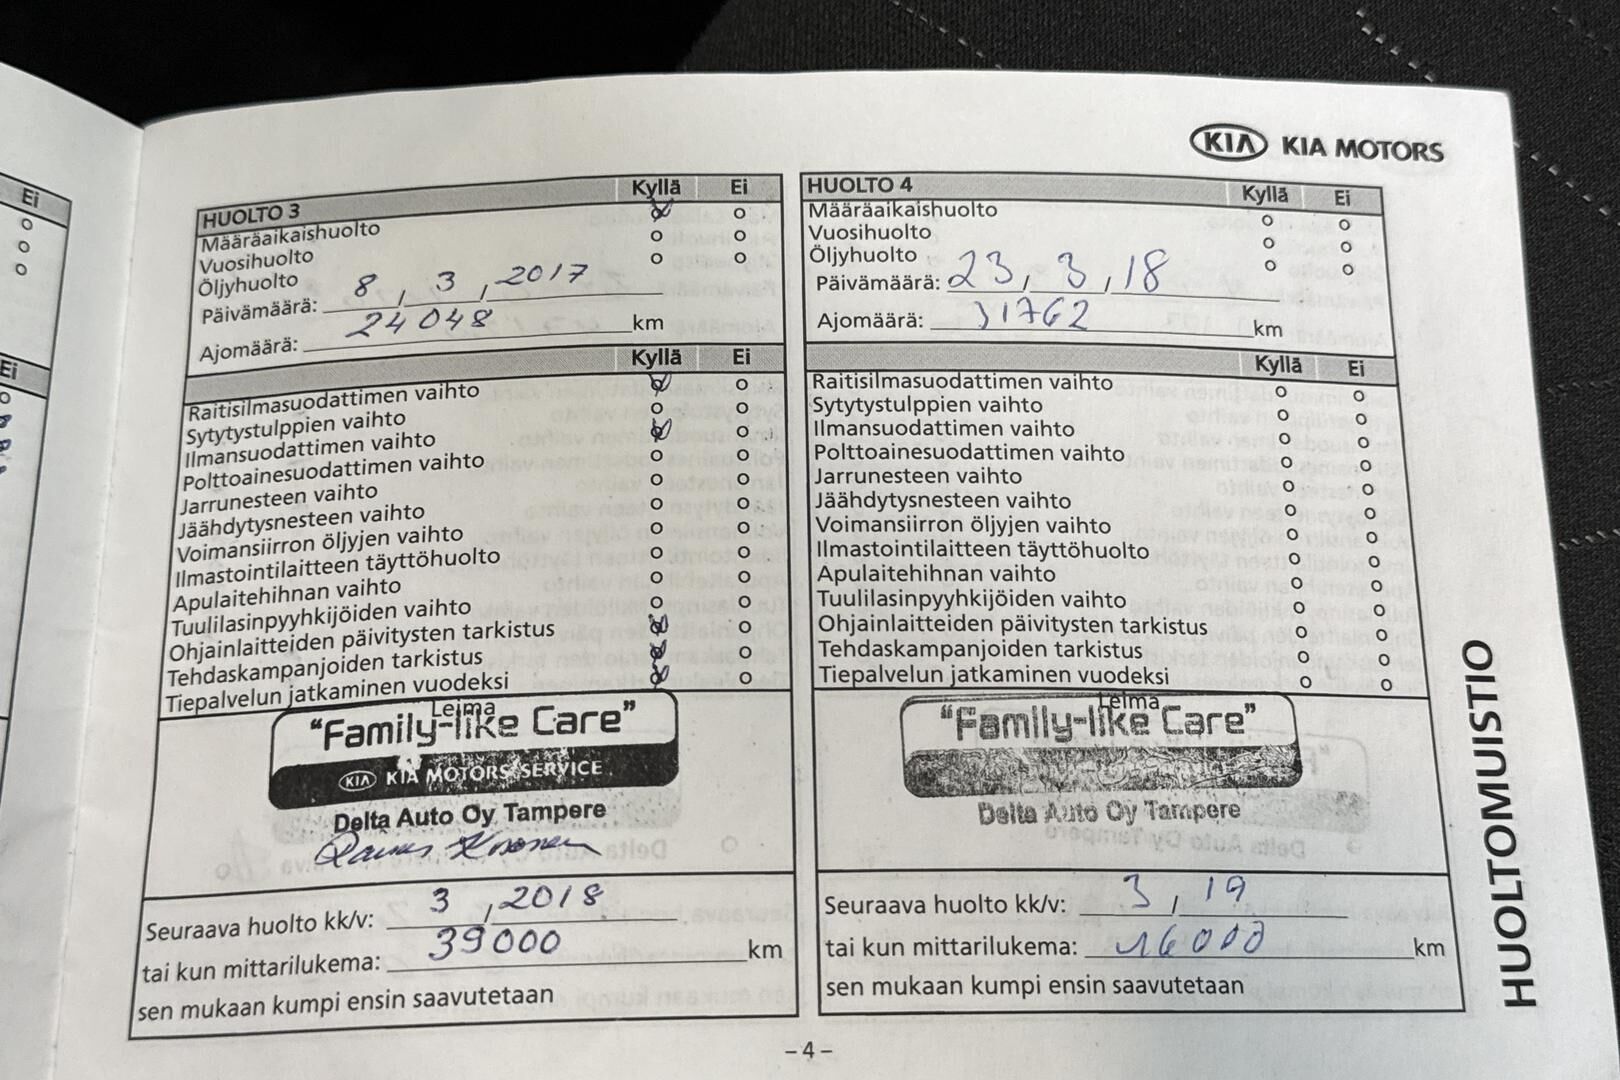 Ei
Ei
KIA KIA MOTORS
HUOLTO 3 Kyllä Ei
Määräaikaishuolto
Vuosihuolto
Öljyhuolto
Päivämäärä: 8, 3, 2017
Ajomäärä: 24 048 km
Kyllä Ei
Raitisilmasuodattimen vaihto
Sytytystulppien vaihto
Ilmansuodattimen vaihto
Polttoainesuodattimen vaihto
Jarrunesteen vaihto
Jäähdytysnesteen vaihto
Voimansiirron öljyjen vaihto
Ilmastointilaitteen täyttöhuolto
Apulaitehihnan vaihto
Tuulilasinpyyhkijöiden vaihto
Ohjainlaitteiden päivitysten tarkistus
Tehdaskampanjoiden tarkistus
Tiepalvelun jatkaminen vuodeksi
Leima
"Family-like Care"
KIA KIA MOTORS SERVICE
Delta Auto Oy Tampere
Seuraava huolto kk/v: 3, 2018
tai kun mittarilukema: 39000 km
sen mukaan kumpi ensin saavutetaan
HUOLTO 4 Kyllä Ei
Määräaikaishuolto
Vuosihuolto
Öljyhuolto
Päivämäärä: 23, 3, 18
Ajomäärä: 31762 km
Kyllä Ei
Raitisilmasuodattimen vaihto
Sytytystulppien vaihto
Ilmansuodattimen vaihto
Polttoainesuodattimen vaihto
Jarrunesteen vaihto
Jäähdytysnesteen vaihto
Voimansiirron öljyjen vaihto
Ilmastointilaitteen täyttöhuolto
Apulaitehihnan vaihto
Tuulilasinpyyhkijöiden vaihto
Ohjainlaitteiden päivitysten tarkistus
Tehdaskampanjoiden tarkistus
Tiepalvelun jatkaminen vuodeksi
Leima
"Family-like Care"
Delta Auto Oy Tampere
Seuraava huolto kk/v: 3, 19
tai kun mittarilukema: km
sen mukaan kumpi ensin saavutetaan
HUOLTOMUISTIO
– 4 –